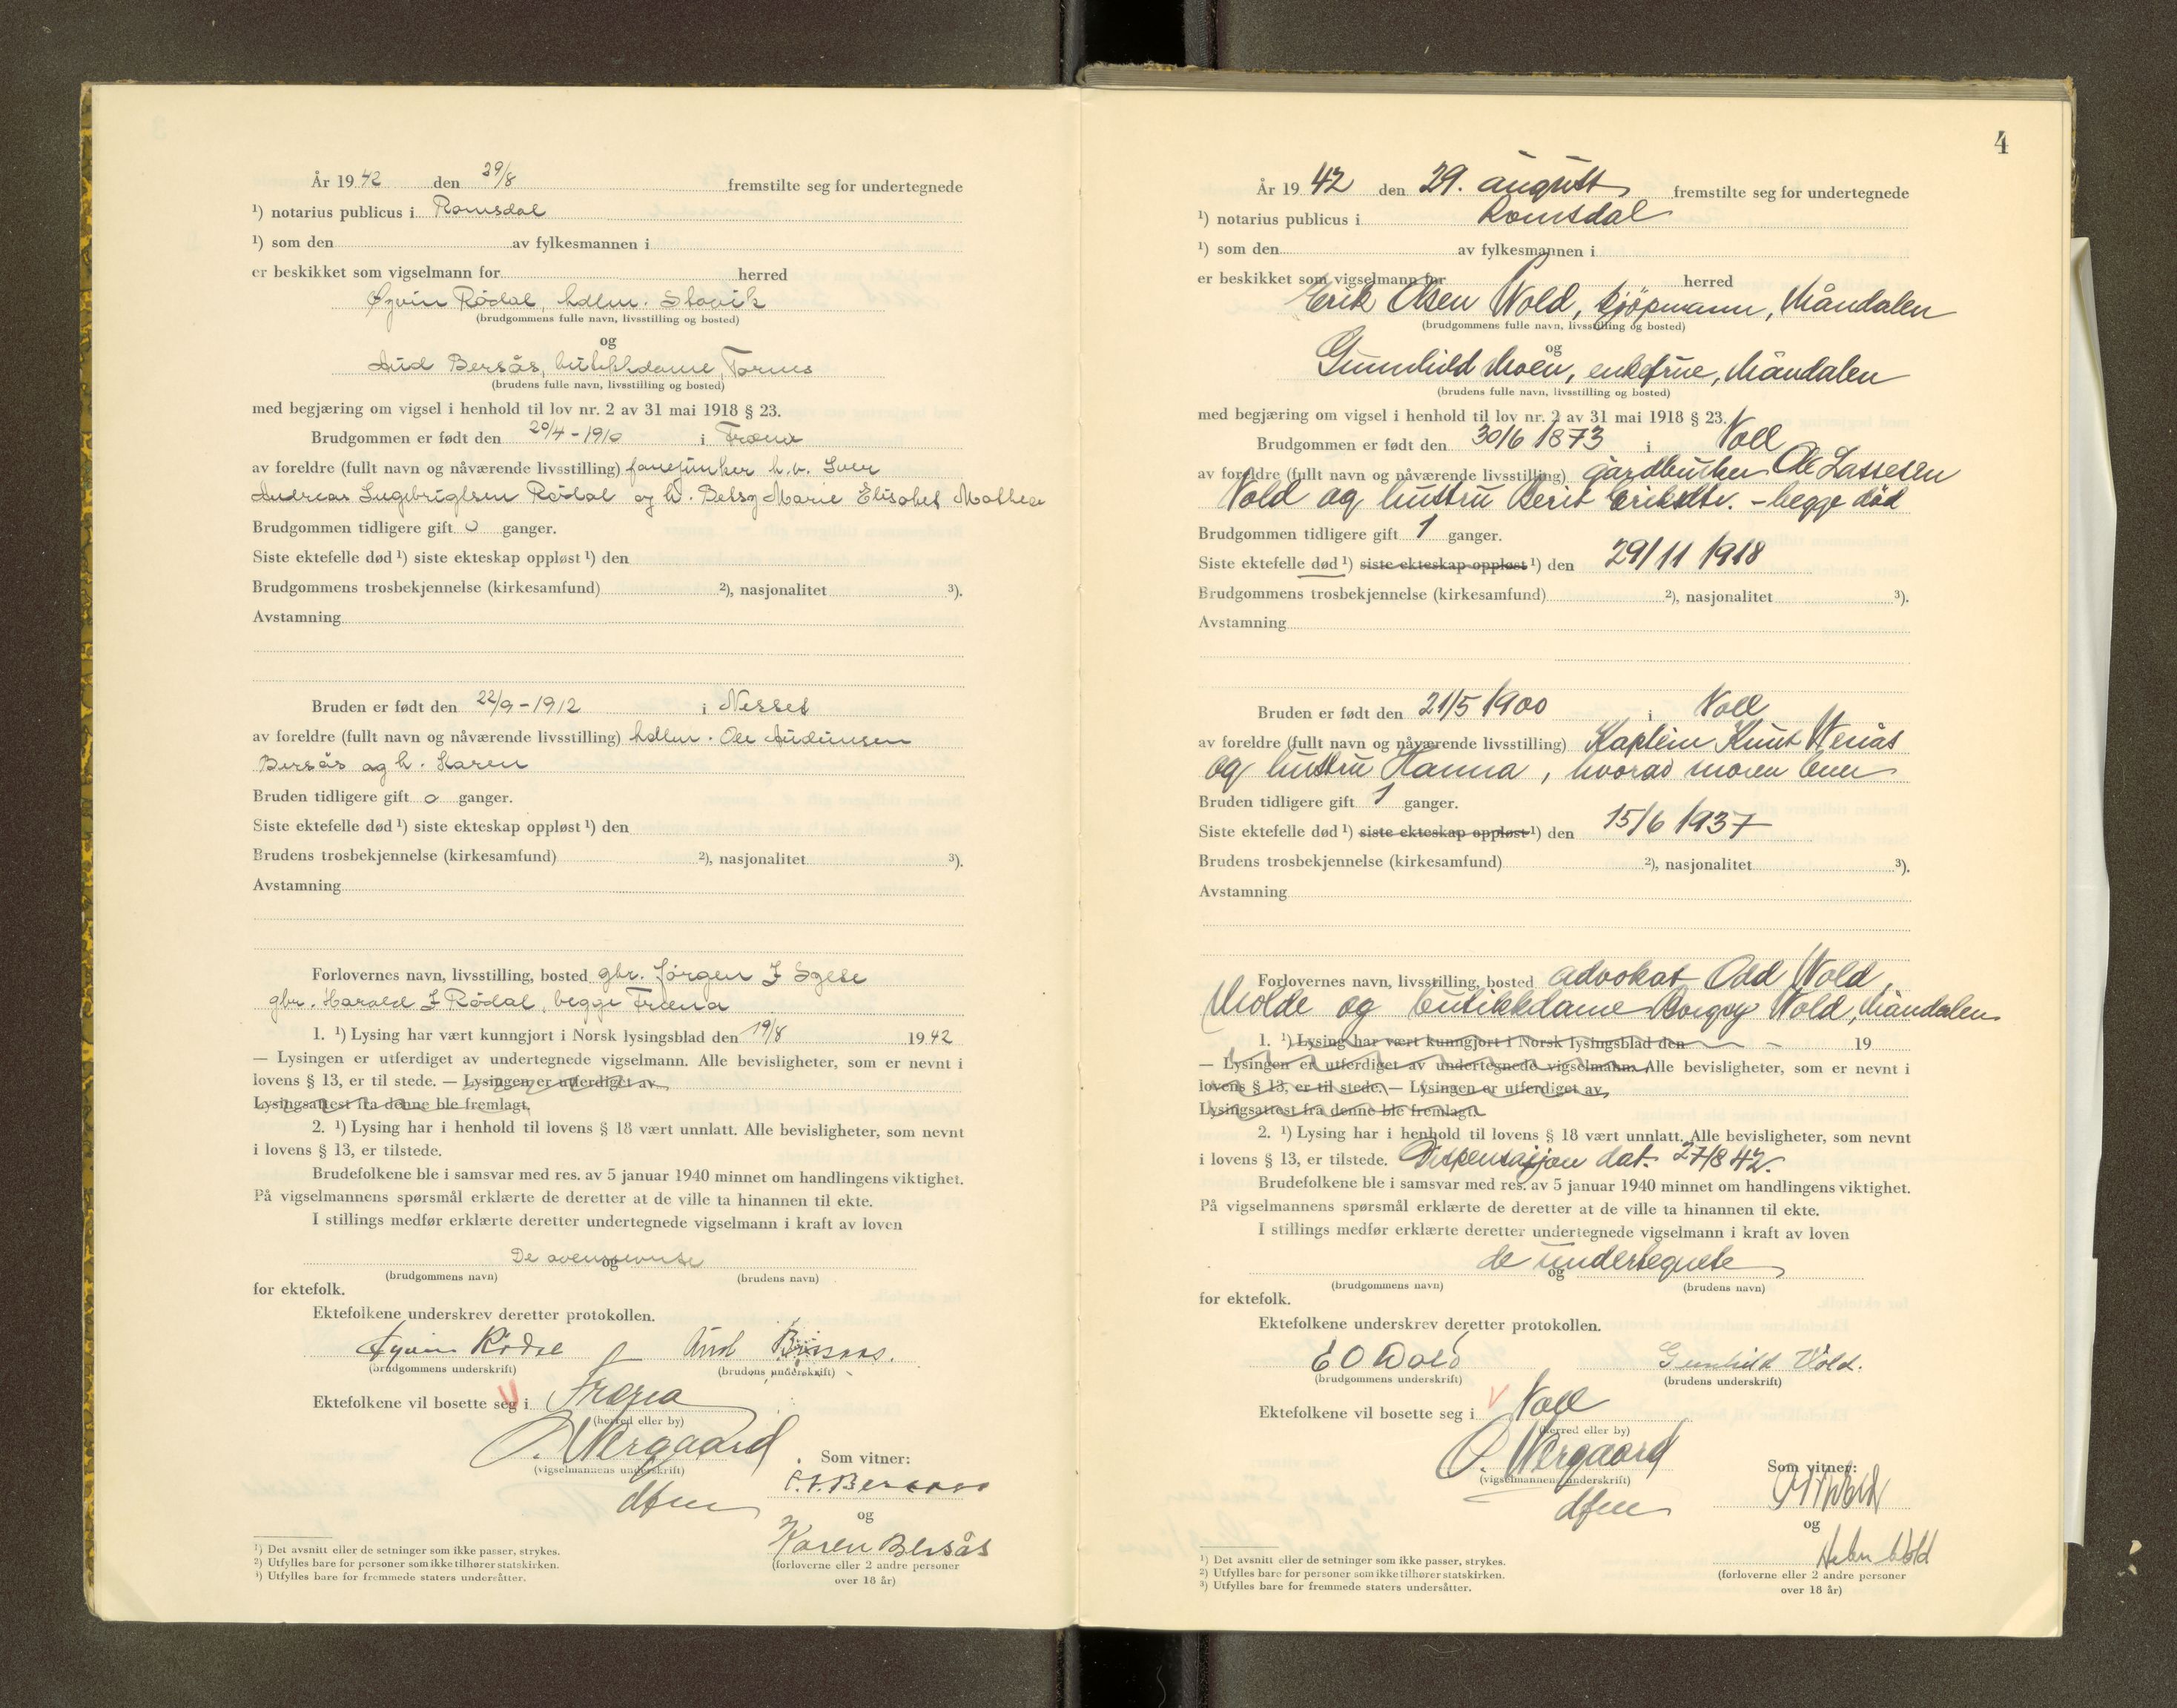 År 19 42 den 29/8 fremstilte seg for undertegnede
¹) notarius publicus i Romsdal
¹) som den av fylkesmannen i
er beskikket som vigselmann for herred
Øyvin Rödal, hdlm. Stavik
(brudgommens fulle navn, livsstilling og bosted)
og
Aud Bersås, butikkdame, Tornes
(brudens fulle navn, livsstilling og bosted)
med begjæring om vigsel i henhold til lov nr. 2 av 31 mai 1918 § 23.
Brudgommen er født den 20/4 - 1910 i Fræna
av foreldre (fullt navn og nåværende livsstilling) fanejunker h.v. Iver
Andreas Ingebrigtsen Rödal og h. Betsy Marie Elisabet Mathea
Brudgommen tidligere gift 0 ganger.
Siste ektefelle død ¹) siste ekteskap oppløst ¹) den
Brudgommens trosbekjennelse (kirkesamfund) ²), nasjonalitet ³).
Avstamning
Bruden er født den 22/9 - 1912 i Nesset
av foreldre (fullt navn og nåværende livsstilling) hdlm. Ole Audunsen
Bersås og h. Karen
Bruden tidligere gift 0 ganger.
Siste ektefelle død ¹) siste ekteskap oppløst ¹) den
Brudens trosbekjennelse (kirkesamfund) ²), nasjonalitet ³).
Avstamning
Forlovernes navn, livsstilling, bosted gbr. Jørgen J
gbr. Harald I Rödal, begge Fræna
1. ¹) Lysing har vært kunngjort i Norsk lysingsblad den 19/8 19 42
— Lysingen er utferdiget av undertegnede vigselmann. Alle bevisligheter, som er nevnt i
lovens § 13, er til stede. — Lysingen er utferdiget av
Lysingsattest fra denne ble fremlagt.
2. ¹) Lysing har i henhold til lovens § 18 vært unnlatt. Alle bevisligheter, som nevnt
i lovens § 13, er tilstede.
Brudefolkene ble i samsvar med res. av 5 januar 1940 minnet om handlingens viktighet.
På vigselmannens spørsmål erklærte de deretter at de ville ta hinannen til ekte.
I stillings medfør erklærte deretter undertegnede vigselmann i kraft av loven
De ovennevnte
og
(brudgommens navn) (brudens navn)
for ektefolk.
Ektefolkene underskrev deretter protokollen.
Øyvin Rödal Aud Bersaas.
(brudgommens underskrift) (brudens underskrift)
Ektefolkene vil bosette seg i Fræna
(herred eller by)
O. Wergaard
(vigselmannens underskrift)
dfm
Som vitner:
Bersaas
og
Karen Bersås
(forloverne eller 2 andre personer
over 18 år)
¹) Det avsnitt eller de setninger som ikke passer, strykes.
²) Utfylles bare for personer som ikke tilhører statskirken.
³) Utfylles bare for fremmede staters undersåtter.
4
År 19 42 den 29. august fremstilte seg for undertegnede
¹) notarius publicus i Romsdal
¹) som den av fylkesmannen i
er beskikket som vigselmann for herred
Erik Olsen Wold, kjöpmann, Måndalen
(brudgommens fulle navn, livsstilling og bosted)
og
Gunnhild Moen, enkefrue, Måndalen
(brudens fulle navn, livsstilling og bosted)
med begjæring om vigsel i henhold til lov nr. 2 av 31 mai 1918 § 23.
Brudgommen er født den 30/6 1873 i Voll
av foreldre (fullt navn og nåværende livsstilling) gårdbruker Ole Lassesen
Vold og hustru Berit Eriksdtr. - begge död
Brudgommen tidligere gift 1 ganger.
Siste ektefelle død ¹) siste ekteskap oppløst ¹) den 29/11 1918
Brudgommens trosbekjennelse (kirkesamfund) ²), nasjonalitet ³).
Avstamning
Bruden er født den 21/5 1900 i Voll
av foreldre (fullt navn og nåværende livsstilling) Kaptein Knut Wenås
og hustru Hanna, hvorav moren lever
Bruden tidligere gift 1 ganger.
Siste ektefelle død ¹) siste ekteskap oppløst ¹) den 15/6 1937
Brudens trosbekjennelse (kirkesamfund) ²), nasjonalitet ³).
Avstamning
Forlovernes navn, livsstilling, bosted advokat Odd Wold,
Molde og butikkdame Borgny Wold, Måndalen
1. ¹) Lysing har vært kunngjort i Norsk lysingsblad den 19
— Lysingen er utferdiget av undertegnede vigselmann. Alle bevisligheter, som er nevnt i
lovens § 13, er til stede. — Lysingen er utferdiget av
Lysingsattest fra denne ble fremlagt.
2. ¹) Lysing har i henhold til lovens § 18 vært unnlatt. Alle bevisligheter, som nevnt
i lovens § 13, er tilstede. Dispensasjon dat. 27/8 42.
Brudefolkene ble i samsvar med res. av 5 januar 1940 minnet om handlingens viktighet.
På vigselmannens spørsmål erklærte de deretter at de ville ta hinannen til ekte.
I stillings medfør erklærte deretter undertegnede vigselmann i kraft av loven
de undertegnete
og
(brudgommens navn) (brudens navn)
for ektefolk.
Ektefolkene underskrev deretter protokollen.
E O Wold Gunhild Vold.
(brudgommens underskrift) (brudens underskrift)
Ektefolkene vil bosette seg i Voll
(herred eller by)
O. Wergaard
(vigselmannens underskrift)
dfm
Som vitner:
Wold
og
Wold
(forloverne eller 2 andre personer
over 18 år)
¹) Det avsnitt eller de setninger som ikke passer, strykes.
²) Utfylles bare for personer som ikke tilhører statskirken.
³) Utfylles bare for fremmede staters undersåtter.